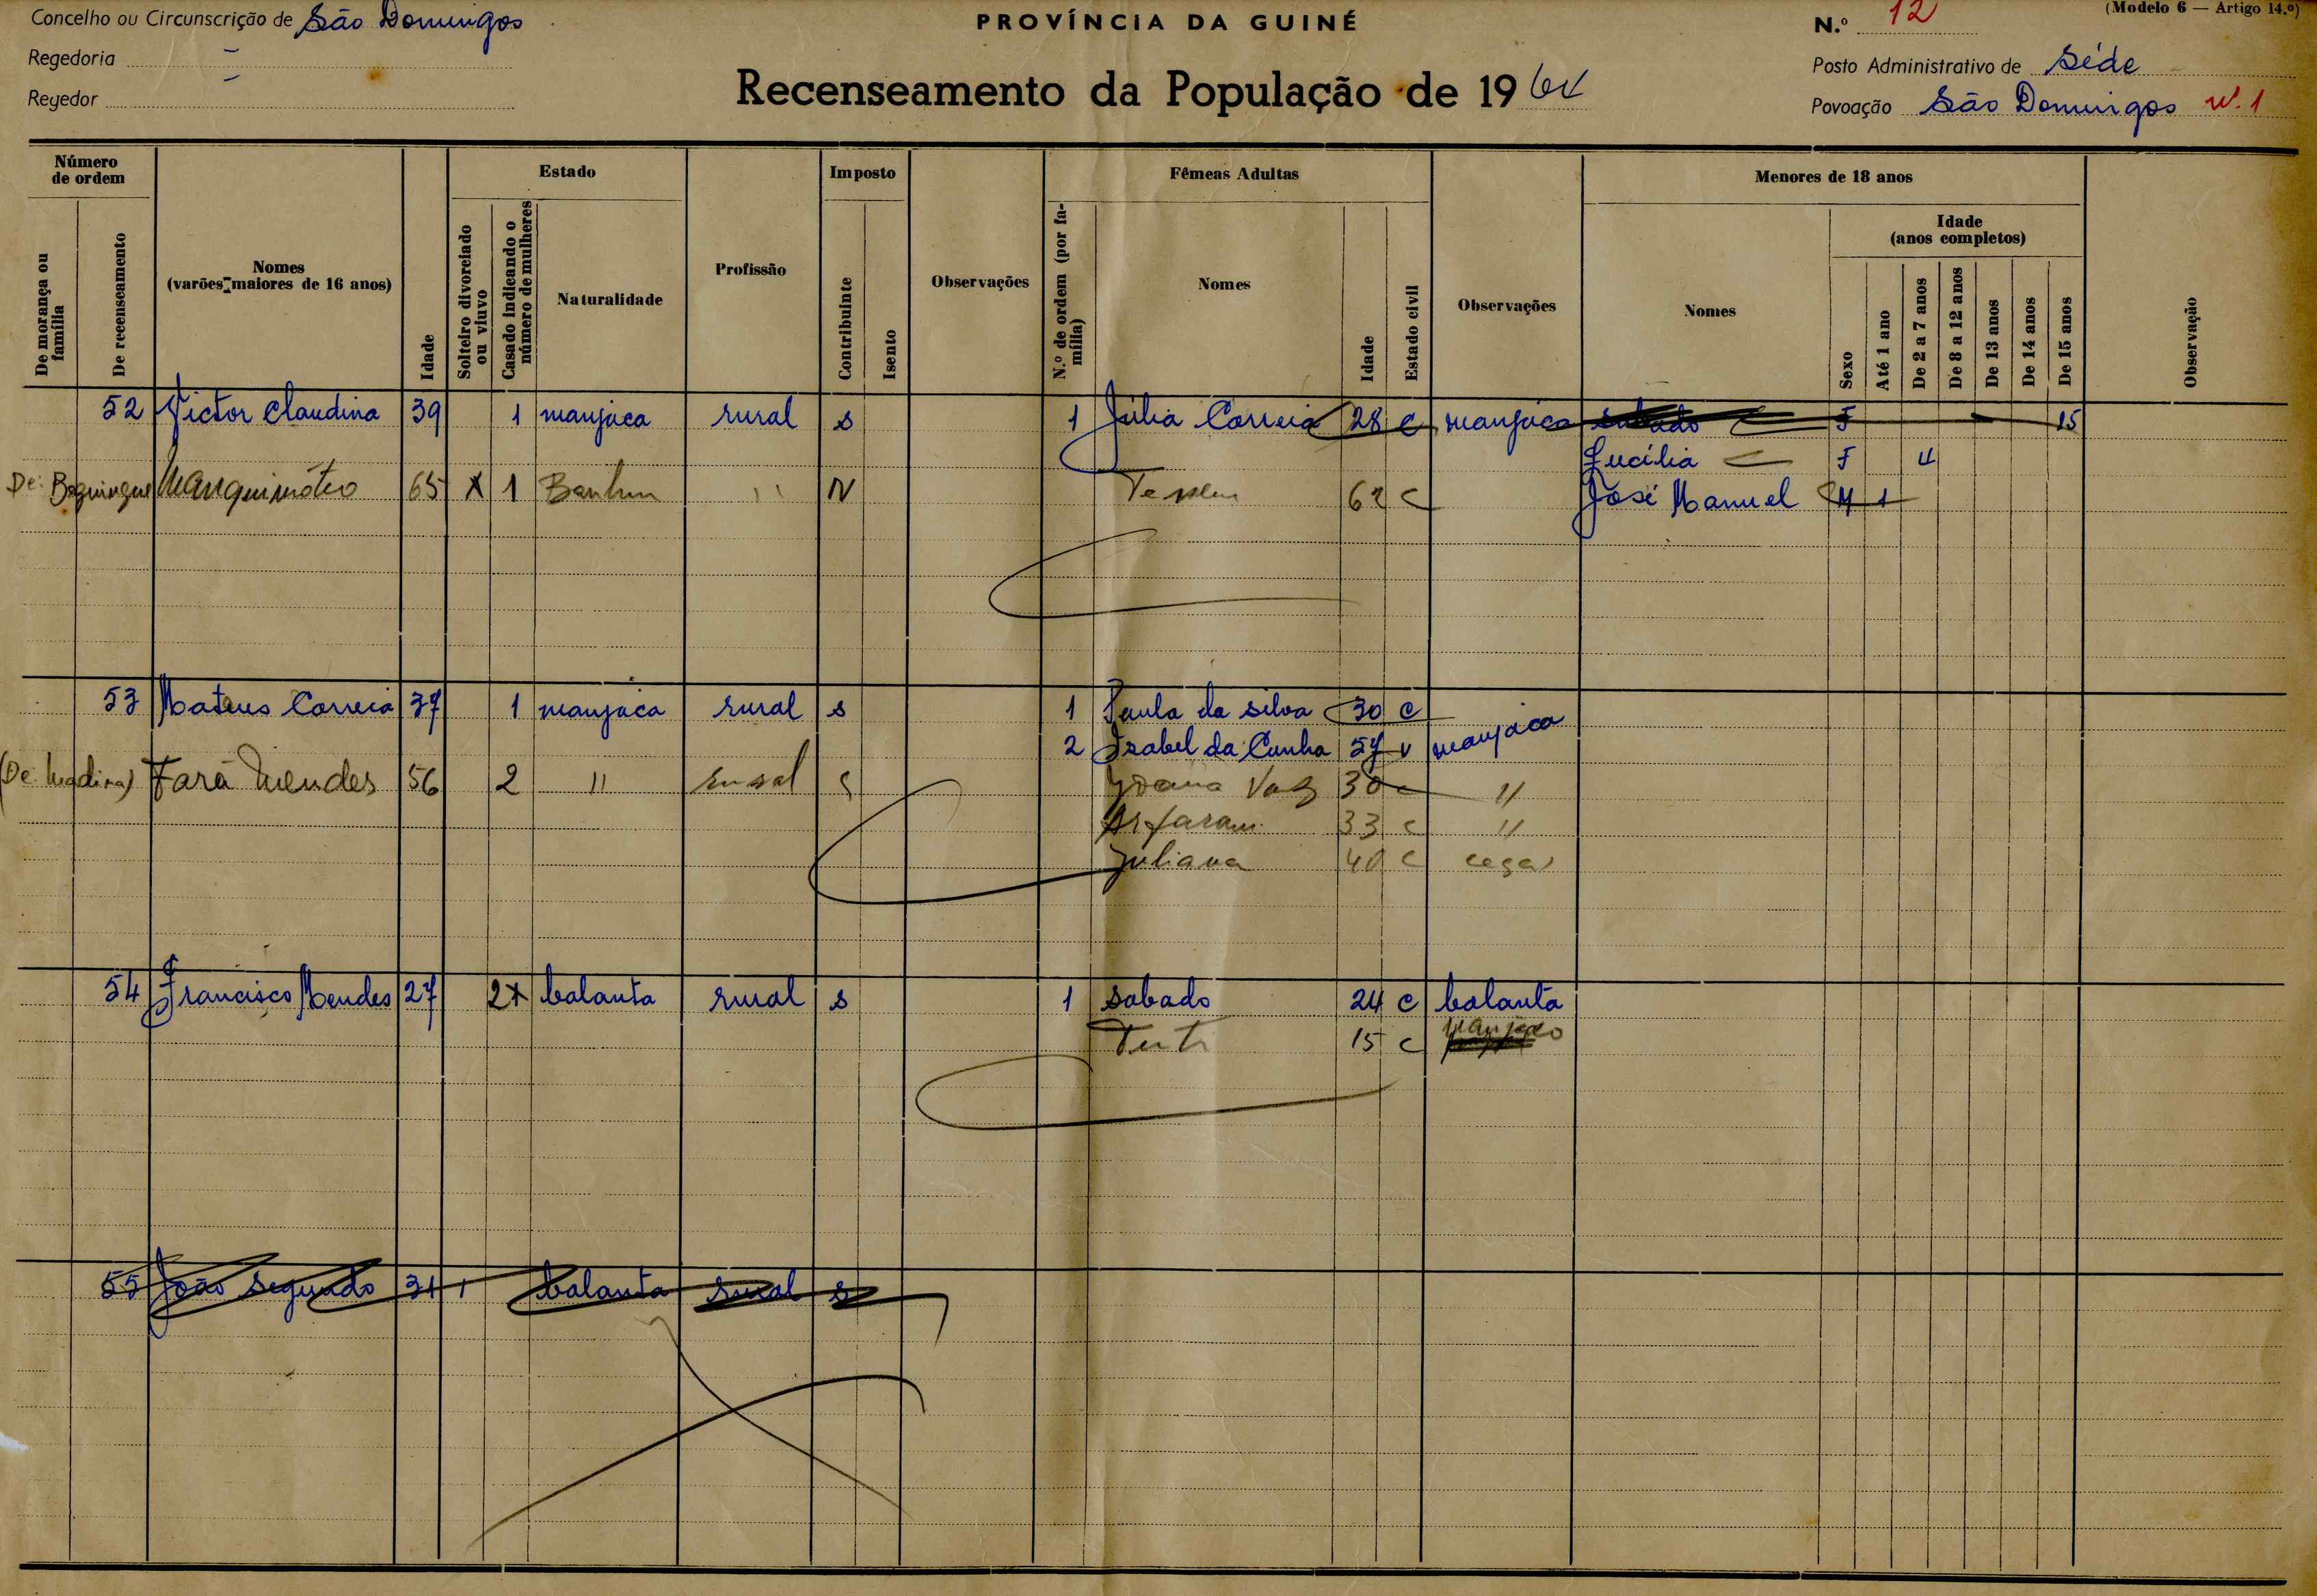 Concelho ou Circunscrição de São Domingos
PROVÍNCIA DA GUINÉ
N.º 12
(Modelo 6 — Artigo 14.º)
Regedoria -
Posto Administrativo de Séde
Regedor -
Recenseamento da População de 1964
Povoação São Domingos nº. 1
Número de ordem
Estado
Imposto
Fêmeas Adultas
Menores de 18 anos
De morança ou família
De recenseamento
Nomes (varões maiores de 16 anos)
Idade
Solteiro divorciado ou viuvo
Casado indicando o número de mulheres
Naturalidade
Profissão
Contribuinte
Isento
Observações
N.º de ordem (por família)
Nomes
Idade
Estado civil
Observações
Nomes
Sexo
Idade (anos completos)
Até 1 ano
De 2 a 7 anos
De 8 a 12 anos
De 13 anos
De 14 anos
De 15 anos
Observação
52 Victor Claudina 39 1 manjaca rural s 1 Júlia Correia 28 c manjaca sabado F 15
Lucília F 4
De 65 X 1 Banhun " N 62 c José Manuel M 1
53 Mateus Correia 37 1 manjaca rural s 1 Paula da silva 30 c
2 Izabel da Cunha 57 v manjaca
(De Madina) Fara Mendes 56 2 " rural s Joana Vaz 30 c "
33 c "
Juliana 40 c cega
54 Francisco Mendes 27 2 x balanta rural s 1 sabado 24 c balanta
15 c manjaco
55 João Segundo 31 1 balanta rural s